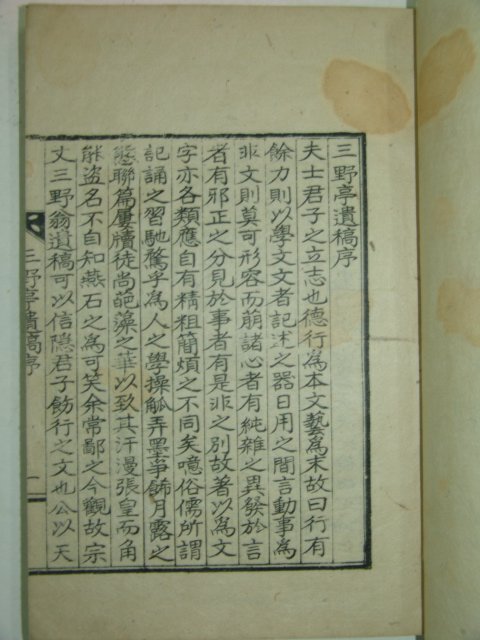 三野亭遺稿序
夫士君子之立志也德行為本文藝為末故曰行有
餘力則以學文文者記述之器日用之間言動事為
非文則莫可形容而萠諸心者有純雜之異發於言
者有邪正之分見於事者有是非之別故著以為文
字亦各類應自有精粗簡煩之不同矣噫俗儒所謂
記誦之習馳騖乎為人之學操觚弄墨爭飾月露之
態聯篇屢牘徒尚葩藻之華以致其汗漫張皇而角
能盜名不自知燕石之為可笑余常鄙之今觀故宗
丈三野翁遺稿可以信隱君子飭行之文也公以天
三野亭遺稿序
一